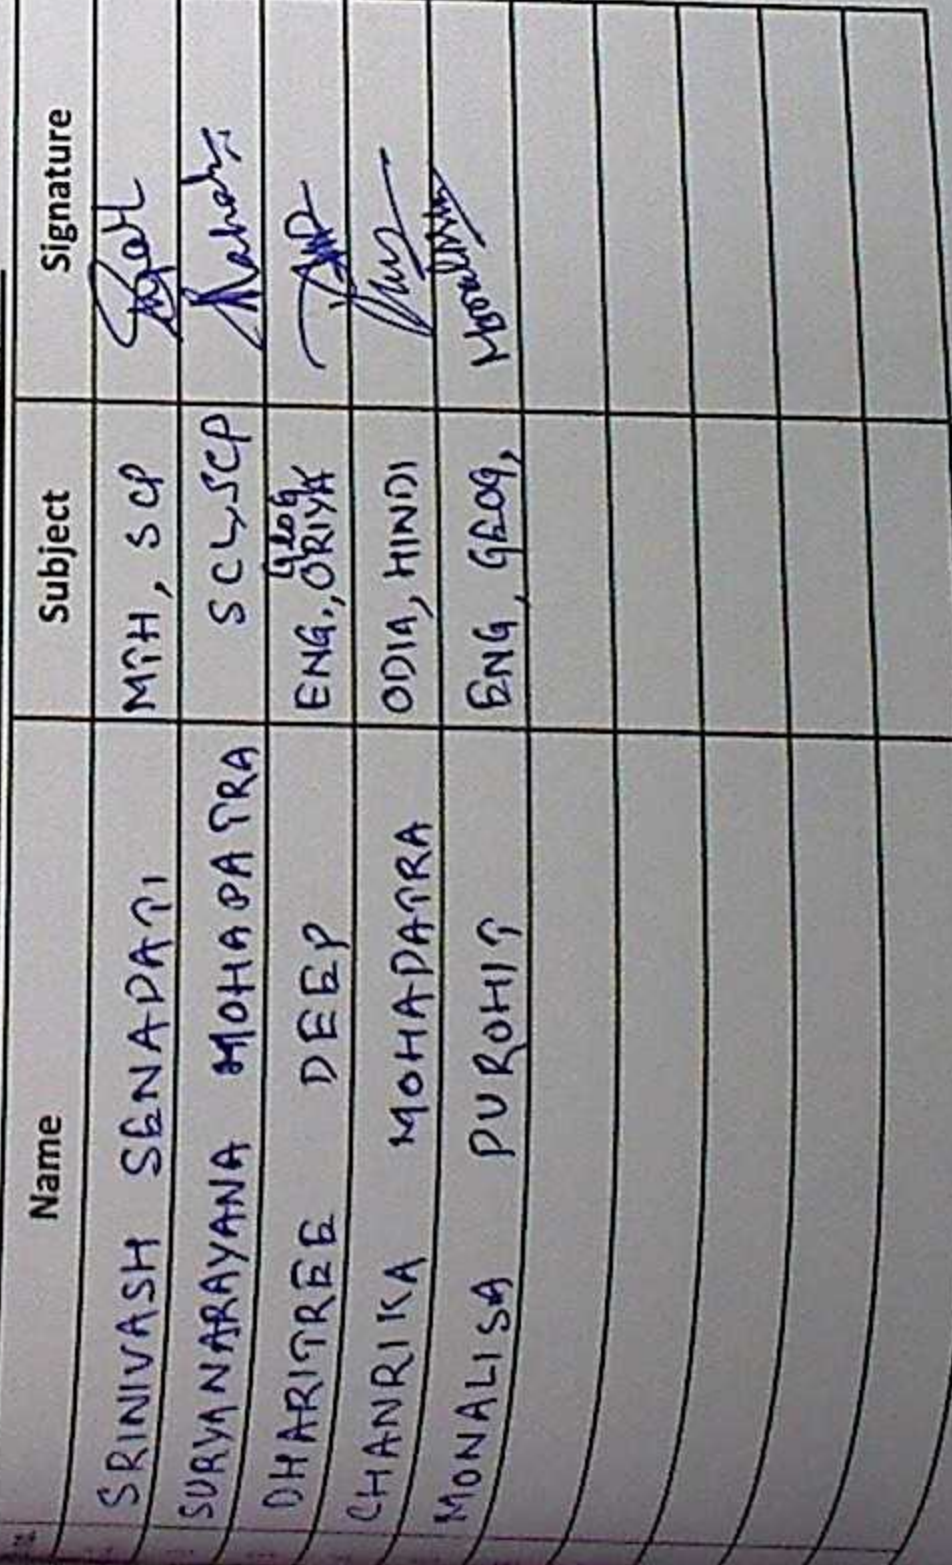 Name Subject Signature
SRINIVASH SENAPATI MTH, SCP
SURYANARAYANA MOHAPATRA SCL, SCP
DHARITREE DEEP ENG., GEOG ORIYA
CHANRIKA MOHAPATRA ODIA, HINDI
MONALISA PUROHIT ENG, GEOG,